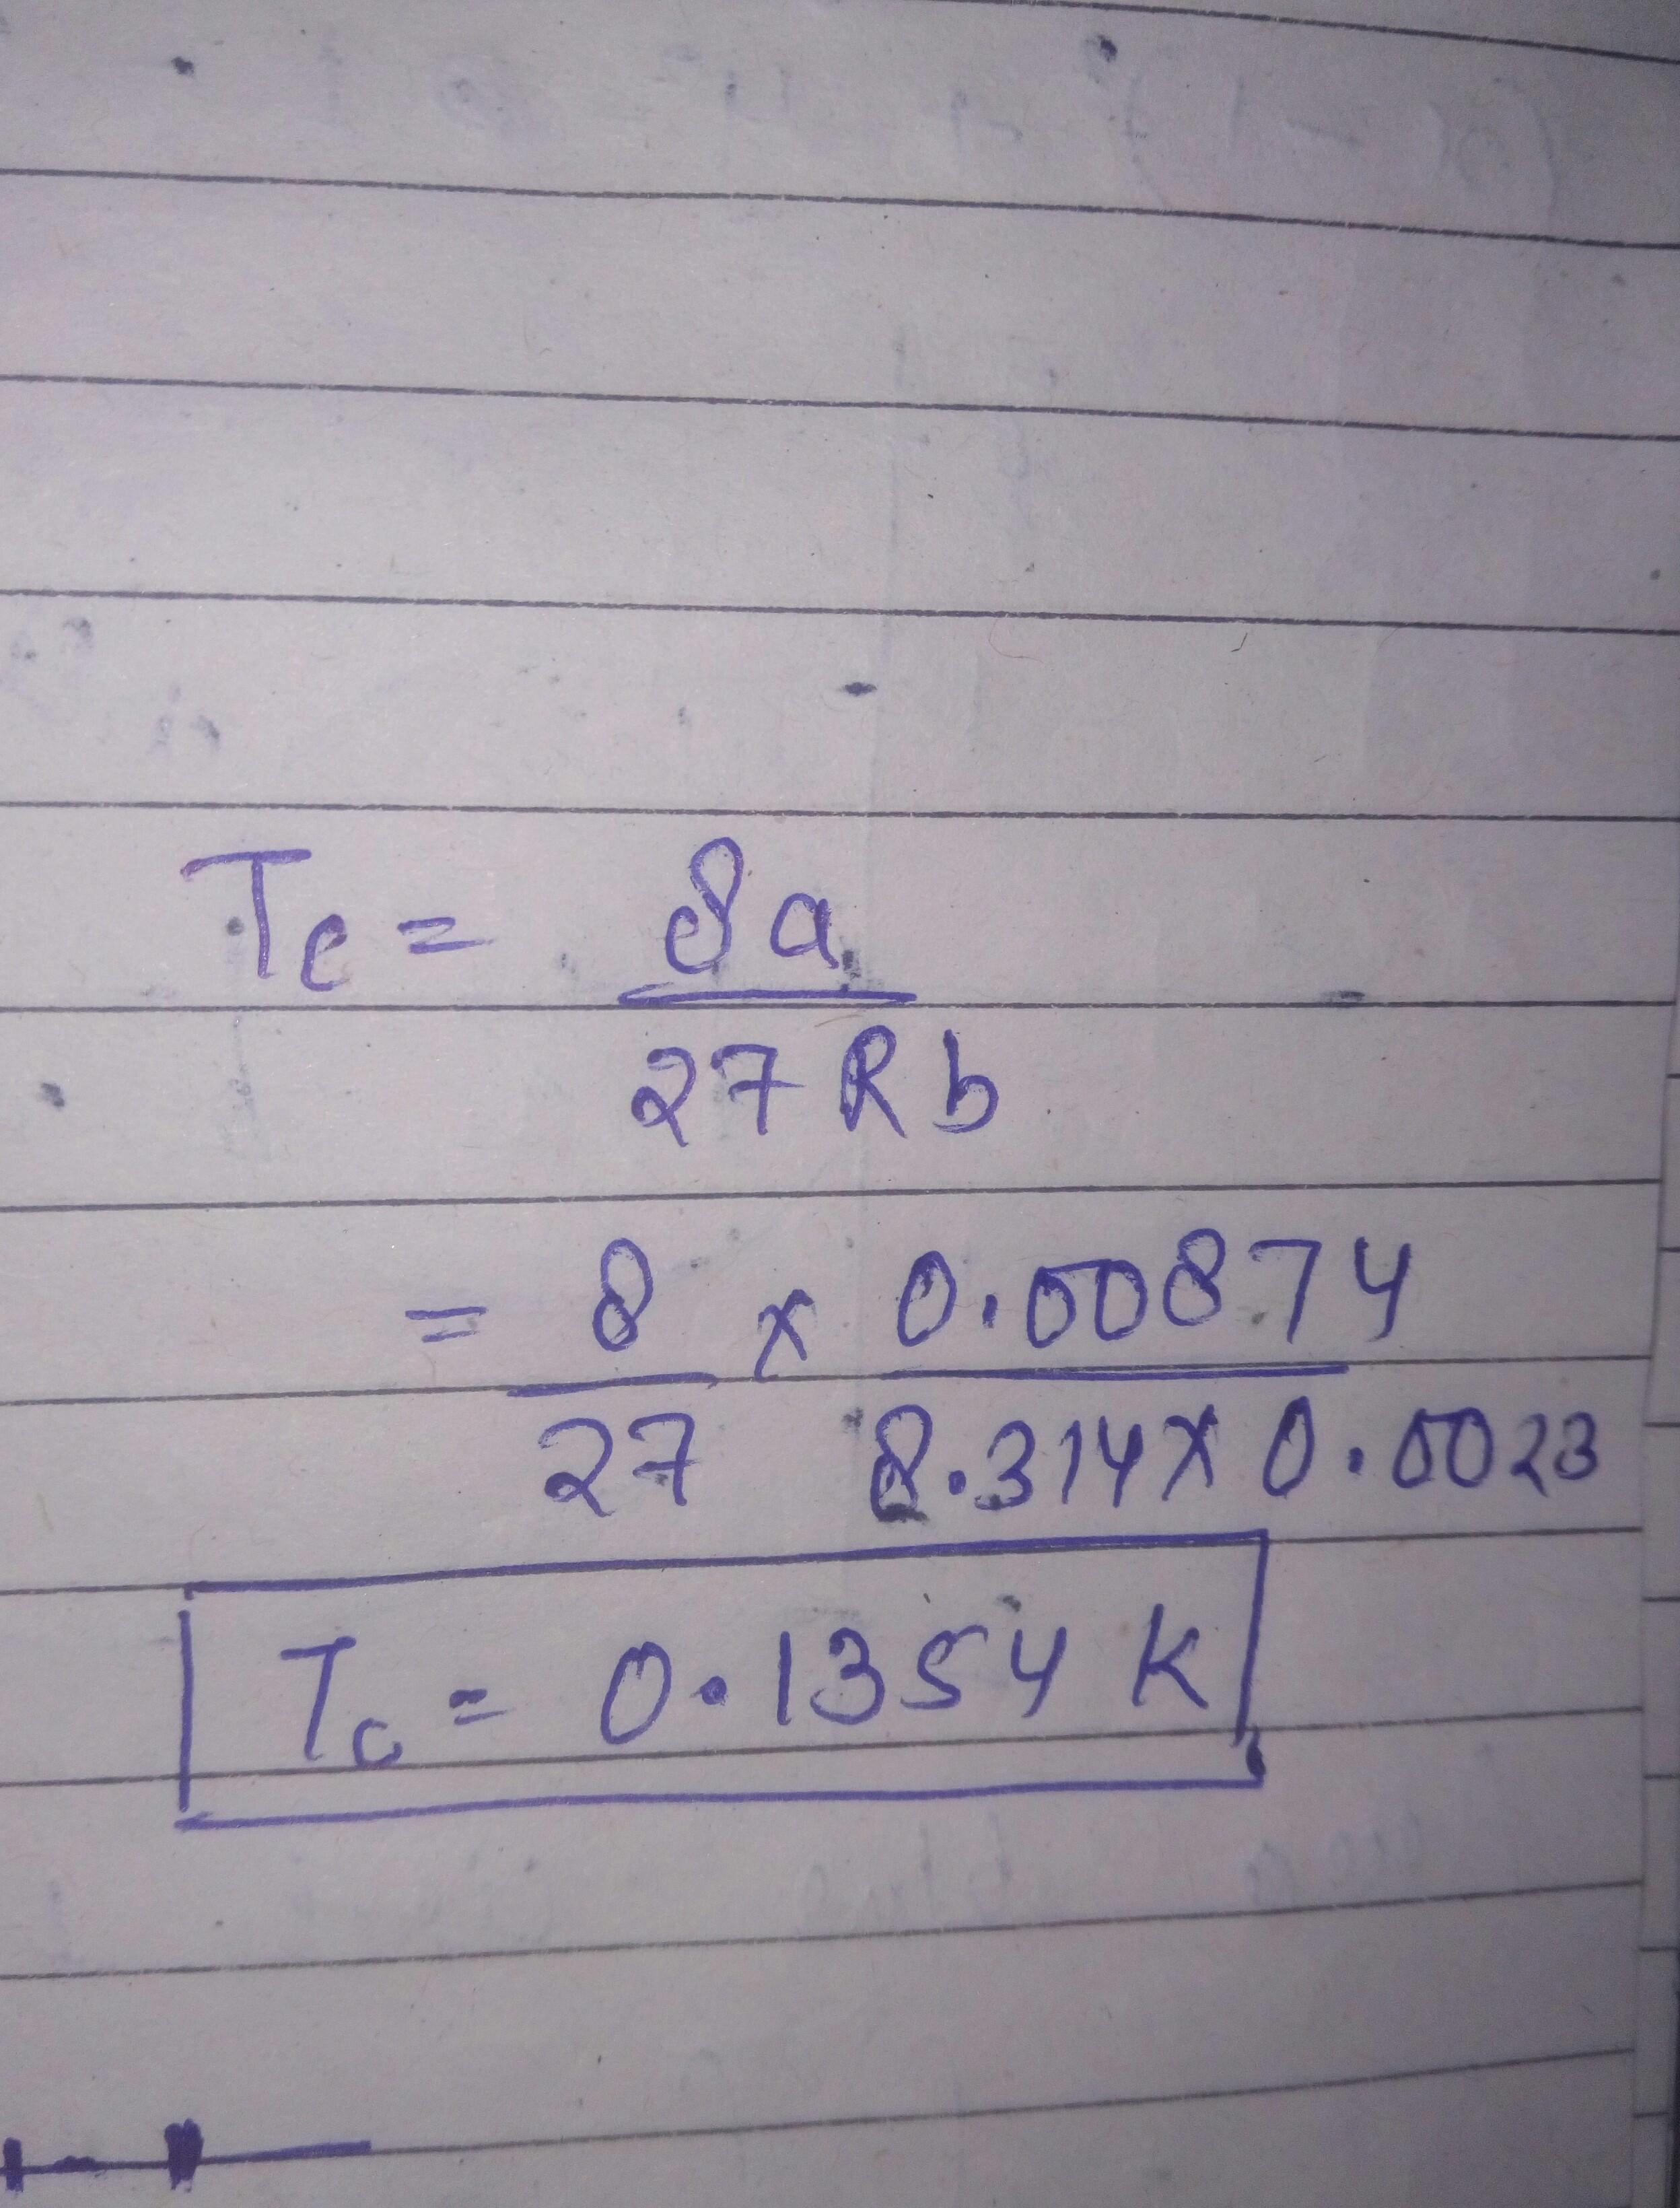 Tc = 8a
27 R b
= 8 x 0.00874
27 8.314 x 0.0023
Tc = 0.1354 K